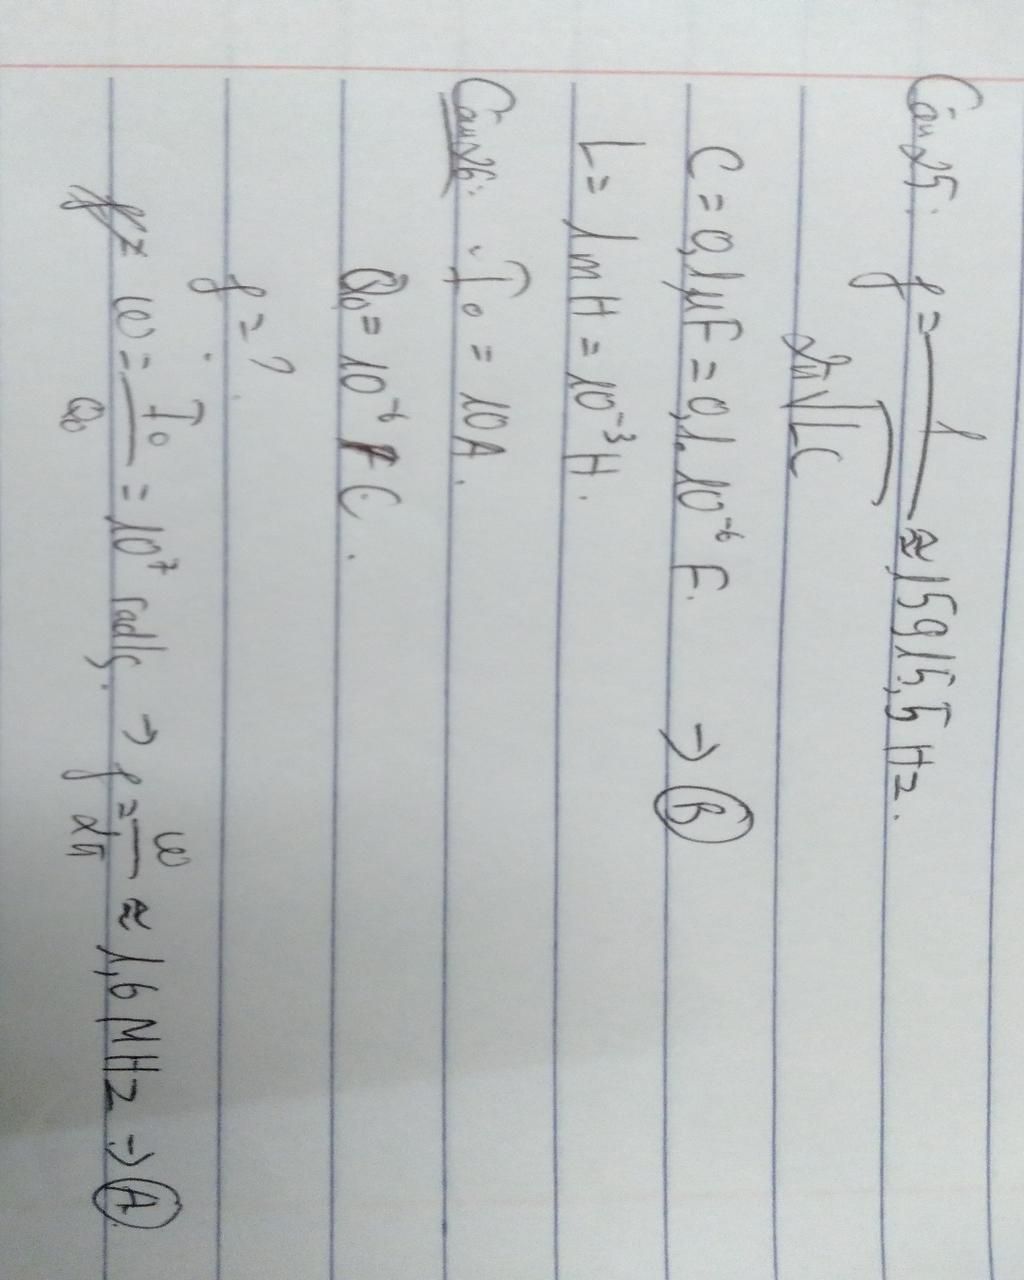 Câu 25: f = 1 / 2π√LC ≈ 15915,5 Hz.
C = 0,1 μF = 0,1. 10⁻⁶ F. → B
L = 1 mH = 10⁻³ H.
Câu 26: I₀ = 10A.
Q₀ = 10⁻⁶ C.
f = ?
ω = I₀ / Q₀ = 10⁷ rad/s. → f = ω / 2π ≈ 1,6 MHz → A